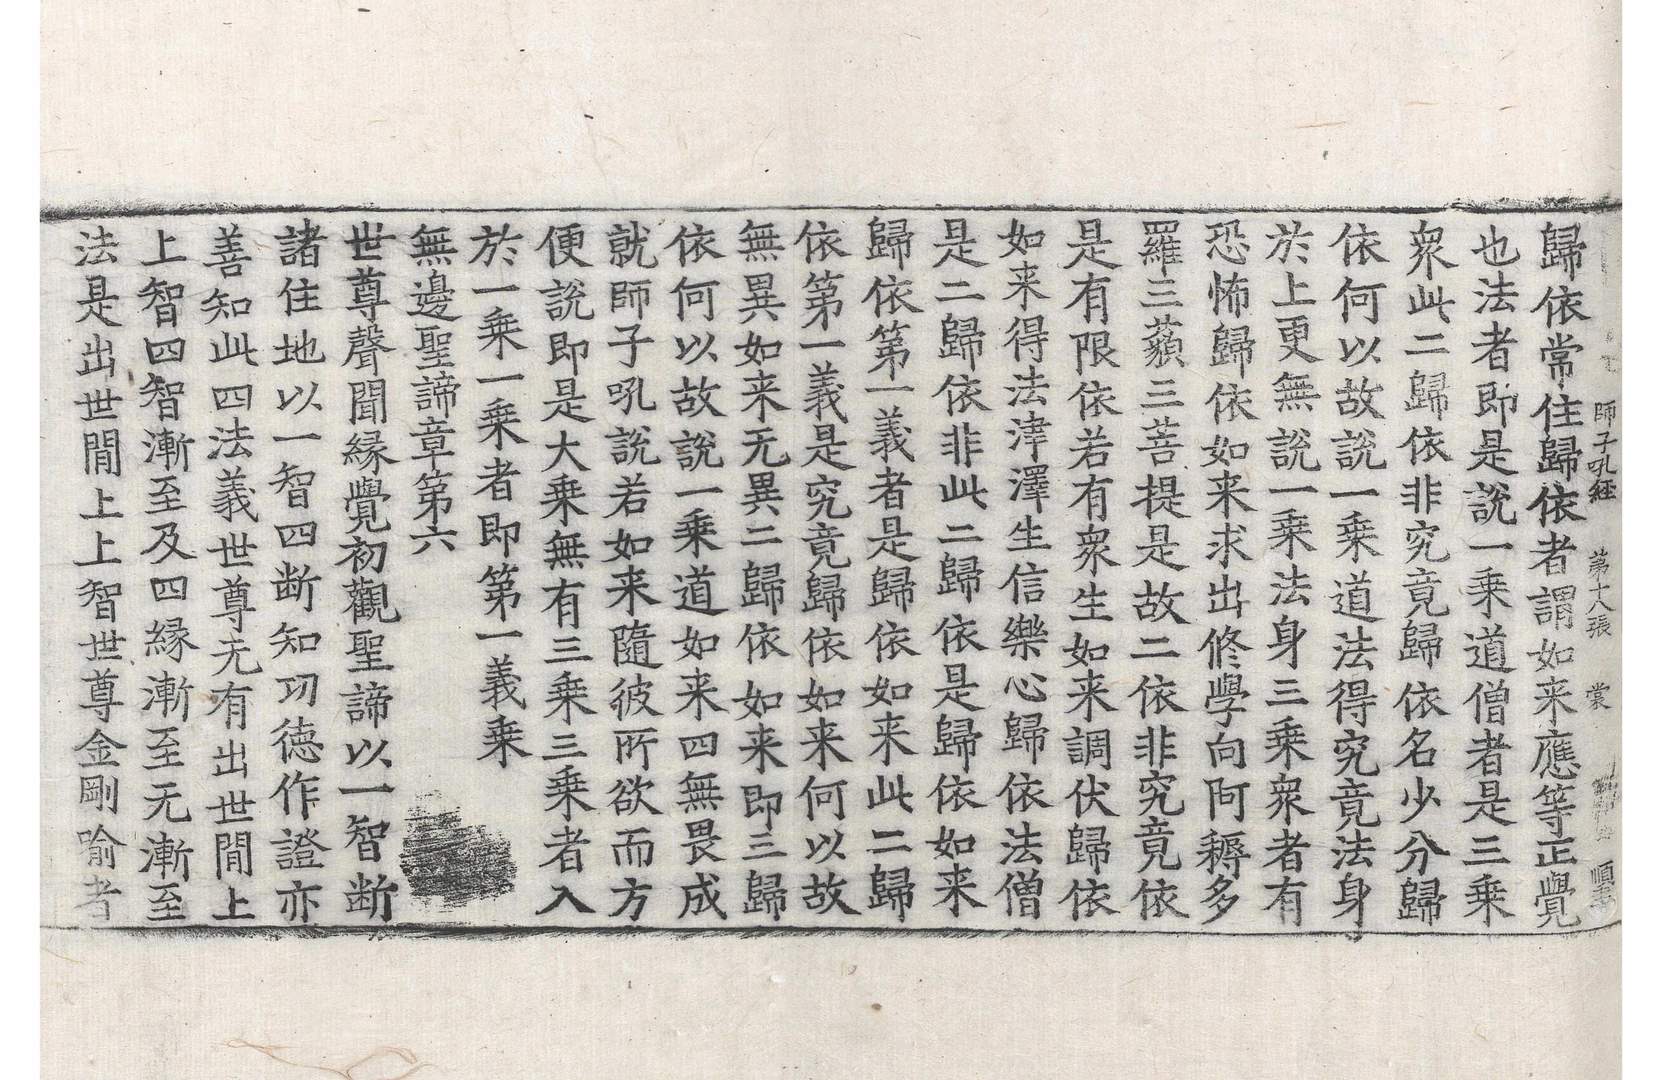 師子吼経 第十八張 裳
歸依常住歸依者謂如来應等正覺
也法者即是說一乗道僧者是三乗
衆此二歸依非究竟歸依名少分歸
依何以故說一乗道法得究竟法身
於上更無說一乗法身三乗衆者有
恐怖歸依如来求出修學向阿耨多
羅三藐三菩提是故二依非究竟依
是有限依若有衆生如来調伏歸依
如来得法津澤生信樂心歸依法僧
是二歸依非此二歸依是歸依如来
歸依第一義者是歸依如来此二歸
依第一義是究竟歸依如来何以故
無異如来无異二歸依如来即三歸
依何以故說一乗道如来四無畏成
就師子吼說若如来隨彼所欲而方
便說即是大乗無有三乗三乗者入
於一乗一乗者即第一義乗
無邊聖諦章第六
世尊聲聞縁覺初觀聖諦以一智断
諸住地以一智四断知功德作證亦
善知此四法義世尊无有出世間上
上智四智漸至及四縁漸至无漸至
法是出世間上上智世尊金剛喻者